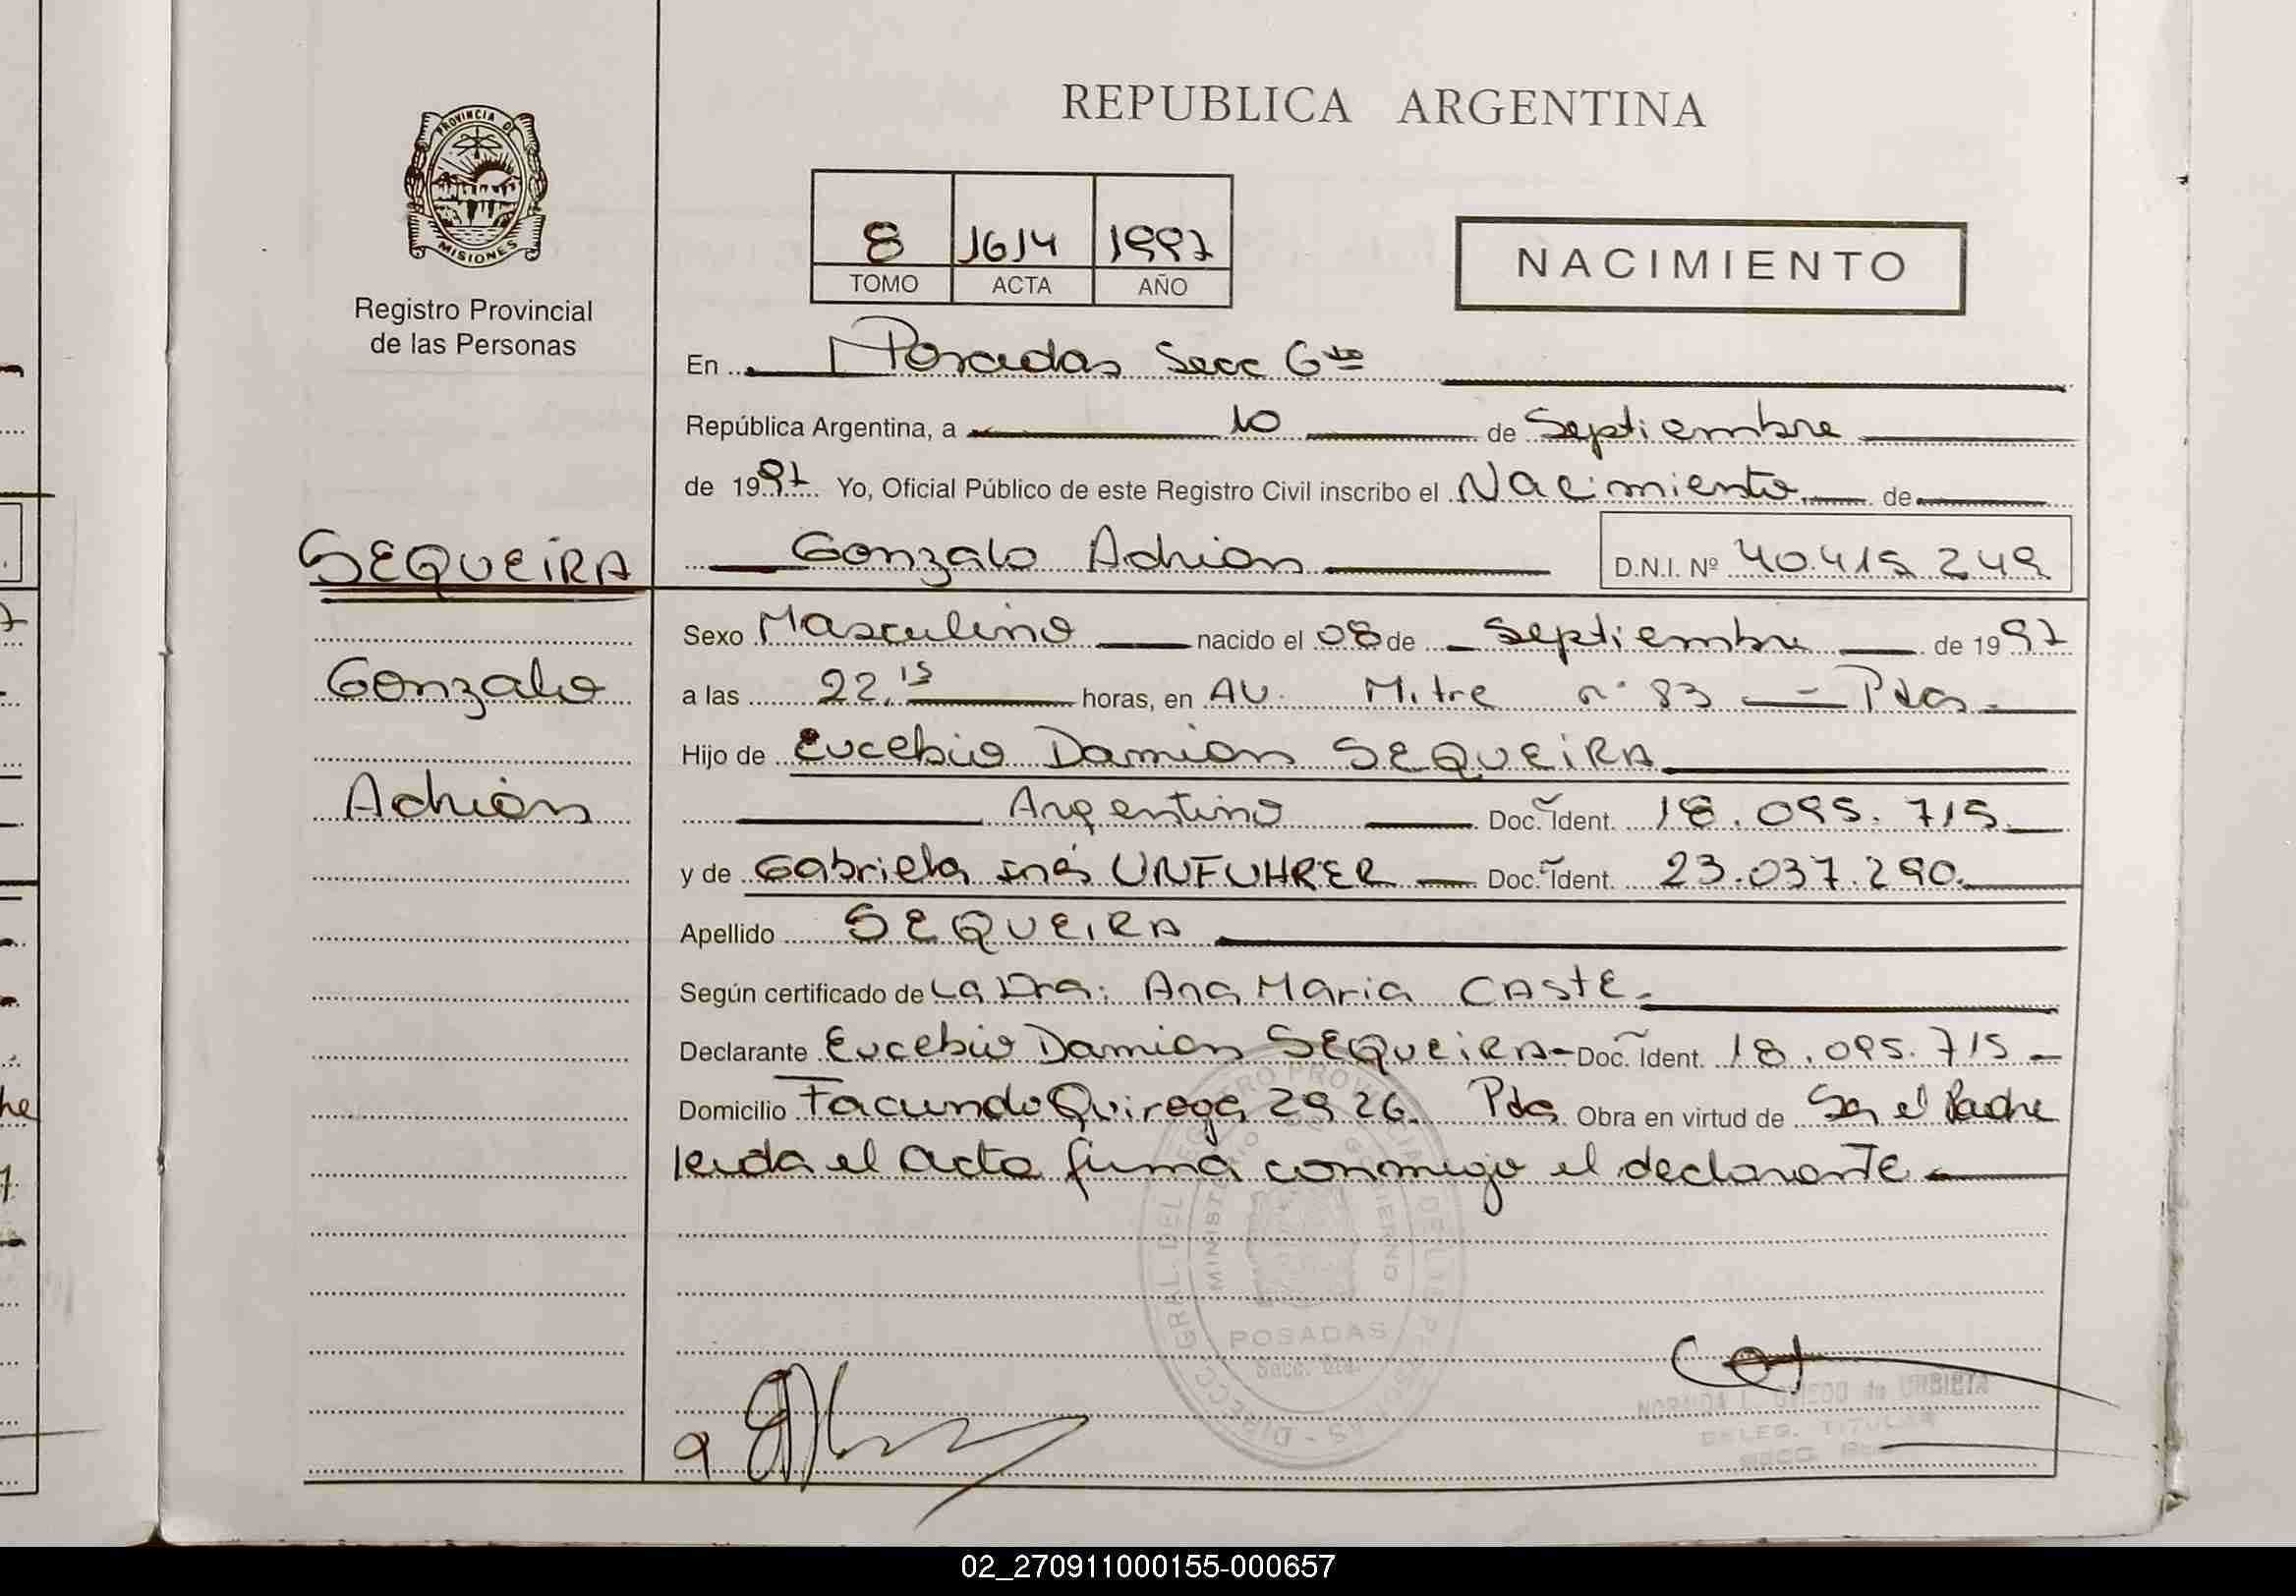 REPUBLICA ARGENTINA
PROVINCIA DE
MISIONES
Registro Provincial
de las Personas
8 1614 1997
TOMO ACTA AÑO
NACIMIENTO
En Posadas Secc 6ta
República Argentina, a 10 de Septiembre
de 1997 Yo, Oficial Público de este Registro Civil inscribo el Nacimiento de
SEQUEIRA
Gonzalo Adrián
D.N.I. Nº 40.415.249
Gonzalo
Adrián
Sexo Masculino nacido el 08 de Septiembre de 1997
a las 22,15 horas, en AV. Mitre nº 83 - Pdas
Hijo de Eucebio Damián SEQUEIRA
Argentino Doc. Ident. 18.095.715
y de Gabriela Inés UNFUHRER Doc. Ident. 23.037.290.
Apellido SEQUEIRA
Según certificado de La Dra: Ana Maria CASTE.
Declarante Eucebio Damián SEQUEIRA - Doc. Ident. 18.095.715 -
Domicilio Facundo Quiroga 2926. Pdas Obra en virtud de Ser el Padre
leida el acta firma conmigo el declarante -
MINISTERIO GOBIERNO
POSADAS
DELEG. TITULAR
02_270911000155-000657